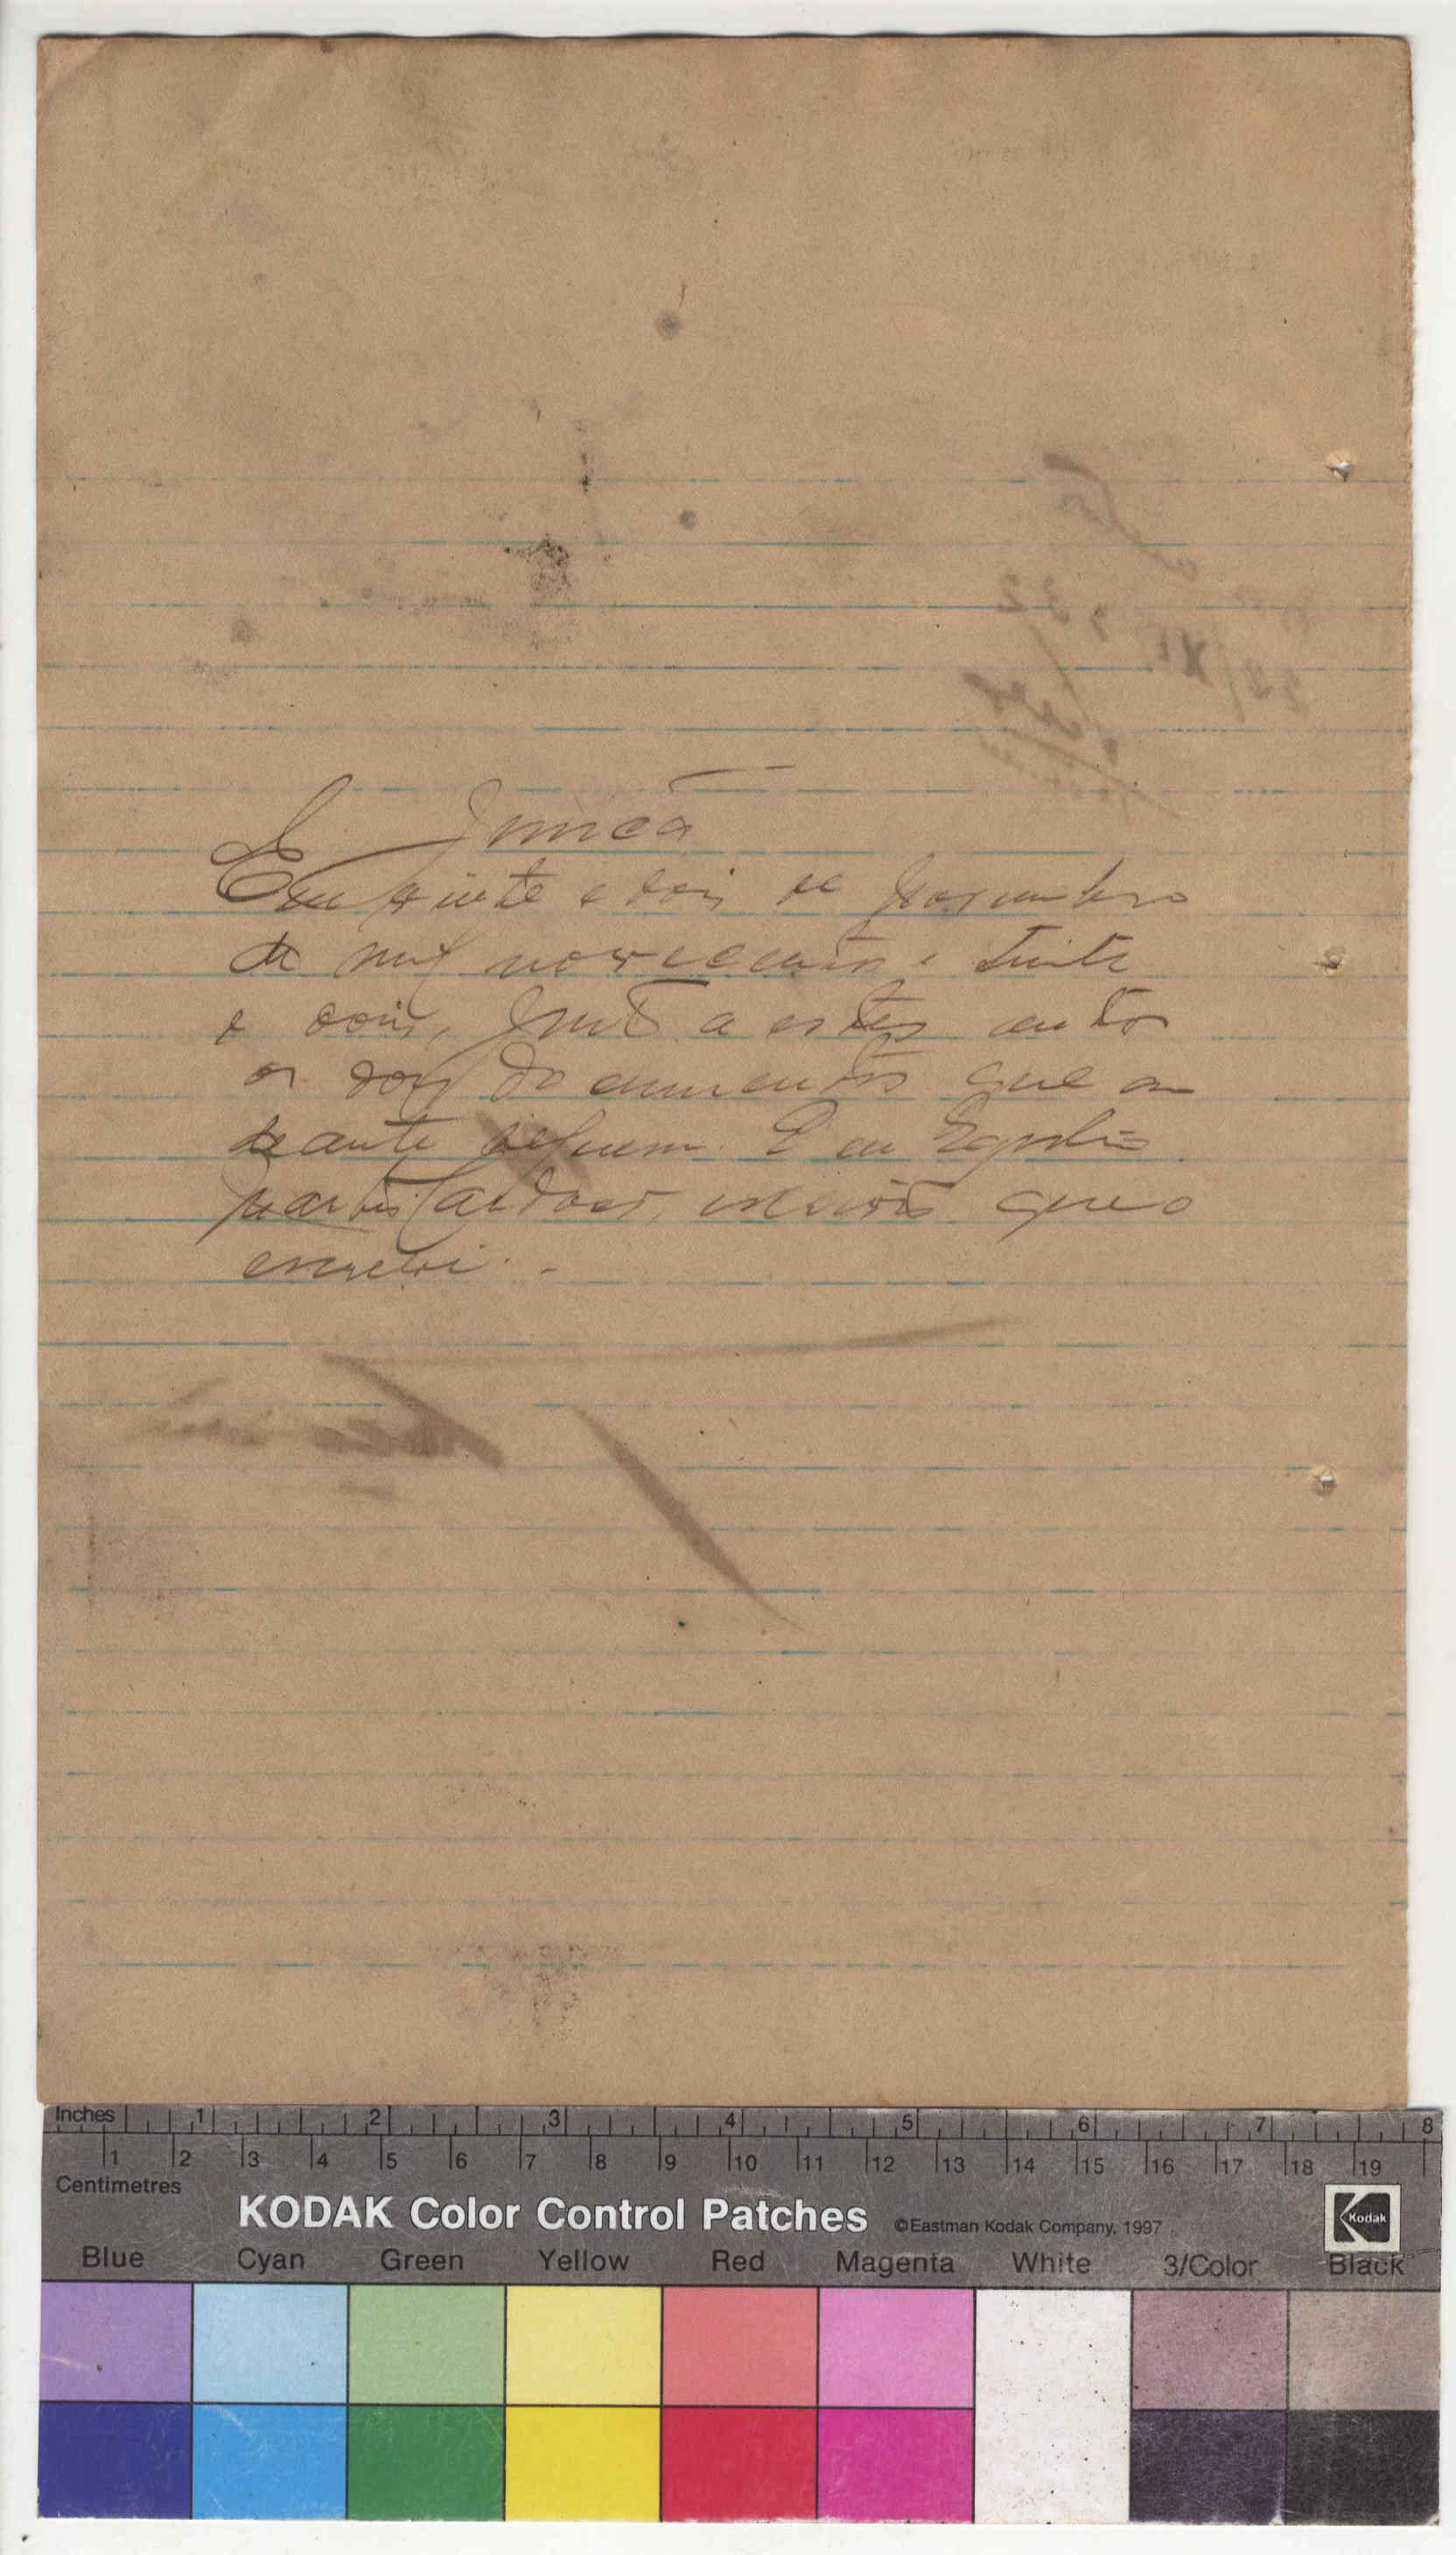 Juntada
Em vinte e dois de Novembro
de mil novecentos e trinta
e dois, junto a estes autos
os dois documentos que em
deante seguem. E eu
Cardoso, escrivão que o
escrevi.
Inches 1 2 3 4 5 6 7 8
1 2 3 4 5 6 7 8 9 10 11 12 13 14 15 16 17 18 19
Centimetres
KODAK Color Control Patches ©Eastman Kodak Company, 1997 Kodak
Blue Cyan Green Yellow Red Magenta White 3/Color Black